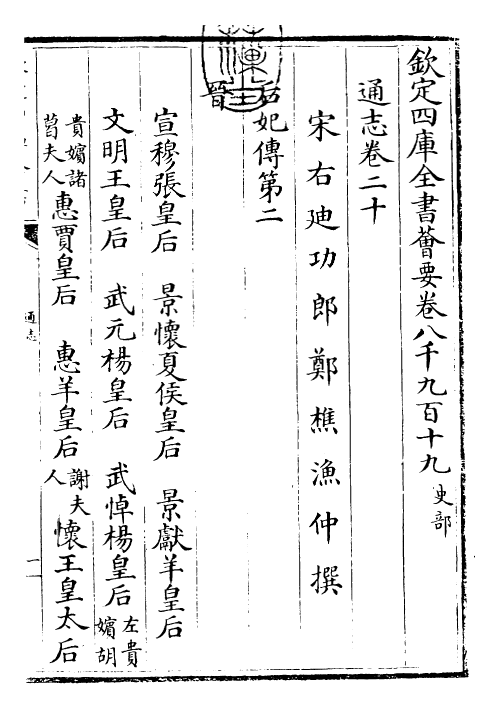 欽定四庫全書薈要卷八千九百十九 史部
通志卷二十
宋右迪功郎鄭樵漁仲撰
后妃傳第二
晉
宣穆張皇后 景懷夏侯皇后 景獻羊皇后
文明王皇后 武元楊皇后 武悼楊皇后 左貴嬪胡
貴嬪諸葛夫人 惠賈皇后 惠羊皇后 謝夫人 懷王皇太后
通志
一